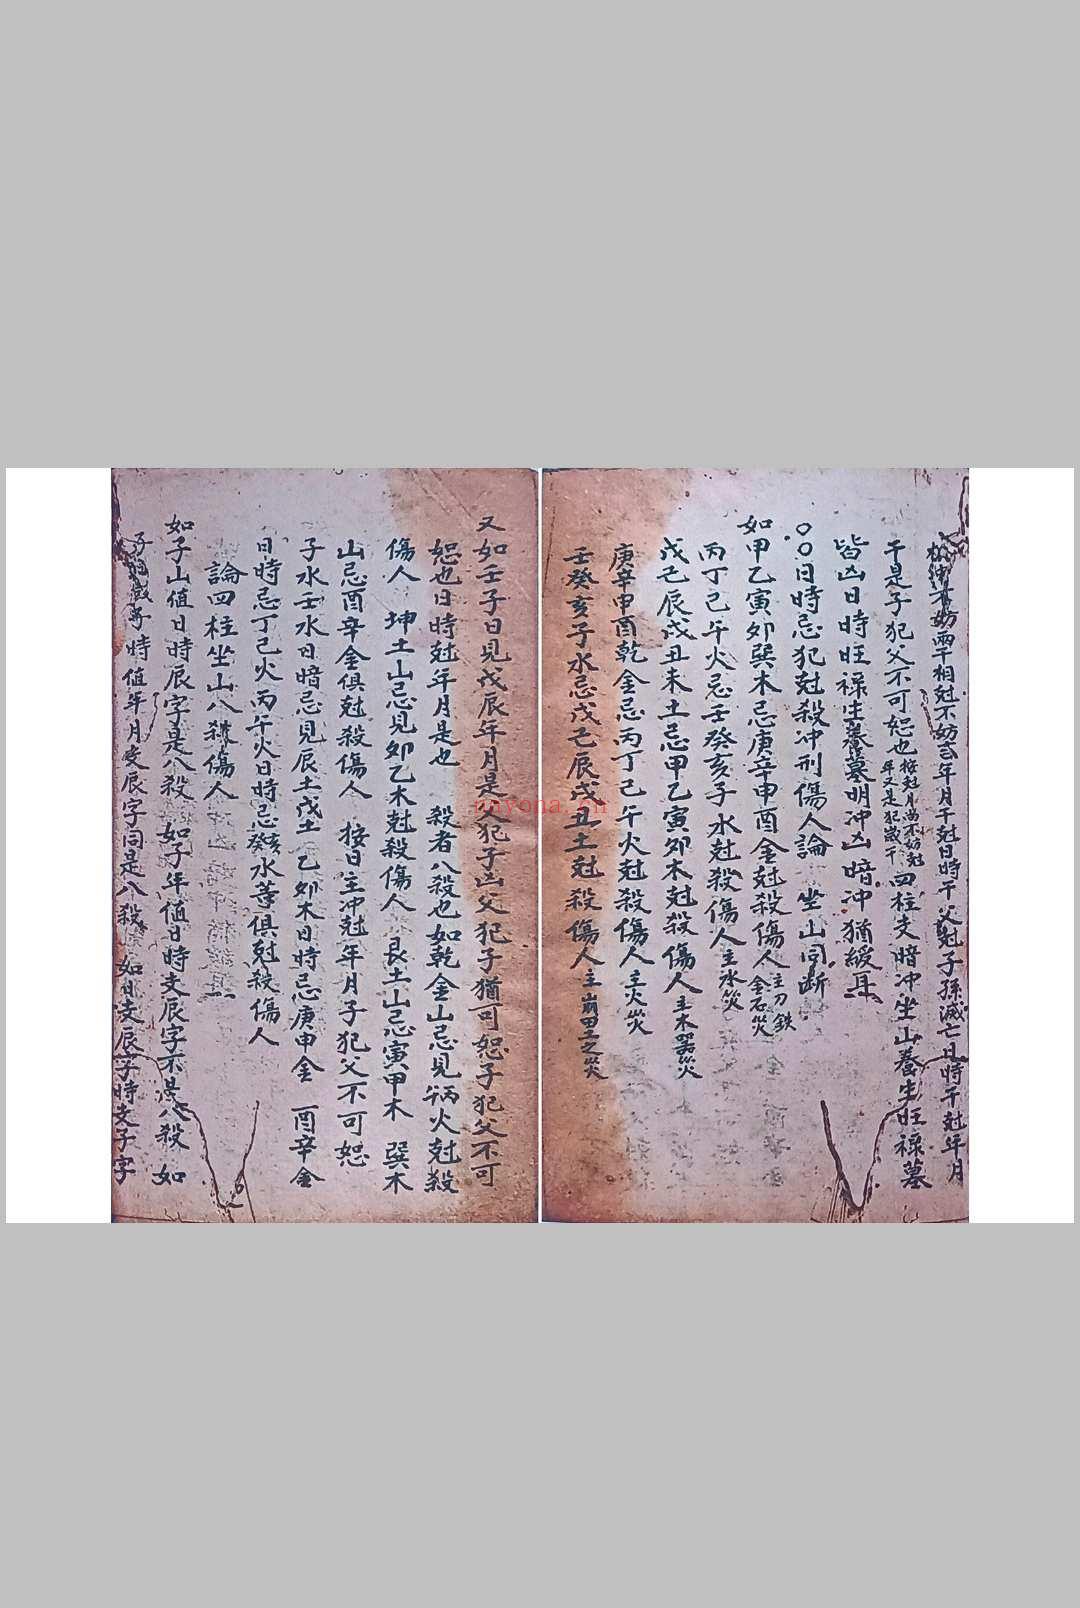 妨兩干相尅不妨弍年月干尅日時干父尅子孫滅亡日時干尅年月
干是子犯父不可恕也按尅月尚不妨尅年又是犯歲干四柱支暗冲坐山養生旺祿墓
皆凶日時旺祿生養墓明冲凶暗冲猶緩耳
〇〇日時忌犯尅殺冲刑傷人論 坐山同断
如甲乙寅卯巽木忌庚辛申酉金尅殺傷人主刀鉄金石災
丙丁巳午火忌壬癸亥子水尅殺傷人主水災
戊己辰戌丑未土忌甲乙寅卯木尅殺傷人主木器災
庚辛申酉乾金忌丙丁巳午火尅殺傷人主火災
壬癸亥子水忌戊己辰戌丑土尅殺傷人主崩之災
又如壬子日見戊辰年月是父犯子凶父犯子猶可恕子犯父不可
恕也日時尅年月是也 殺者八殺也如乾金山忌見丙火尅殺
傷人 坤土山忌見卯乙木尅殺傷人 艮土山忌寅甲木 巽木
山忌酉辛金俱尅殺傷人 按日主冲尅年月子犯父不可恕
子水壬水日暗忌見辰土戊土 乙卯木日時忌庚申金 酉辛金
日時忌丁巳火丙午火日時忌癸亥水等俱尅殺傷人
論四柱坐山八殺傷人
如子山值日時辰字是八殺 如子年值日時支辰字不是八殺 如
時值年月支辰字同是八殺 如支辰字時支子字
nnyona.cn